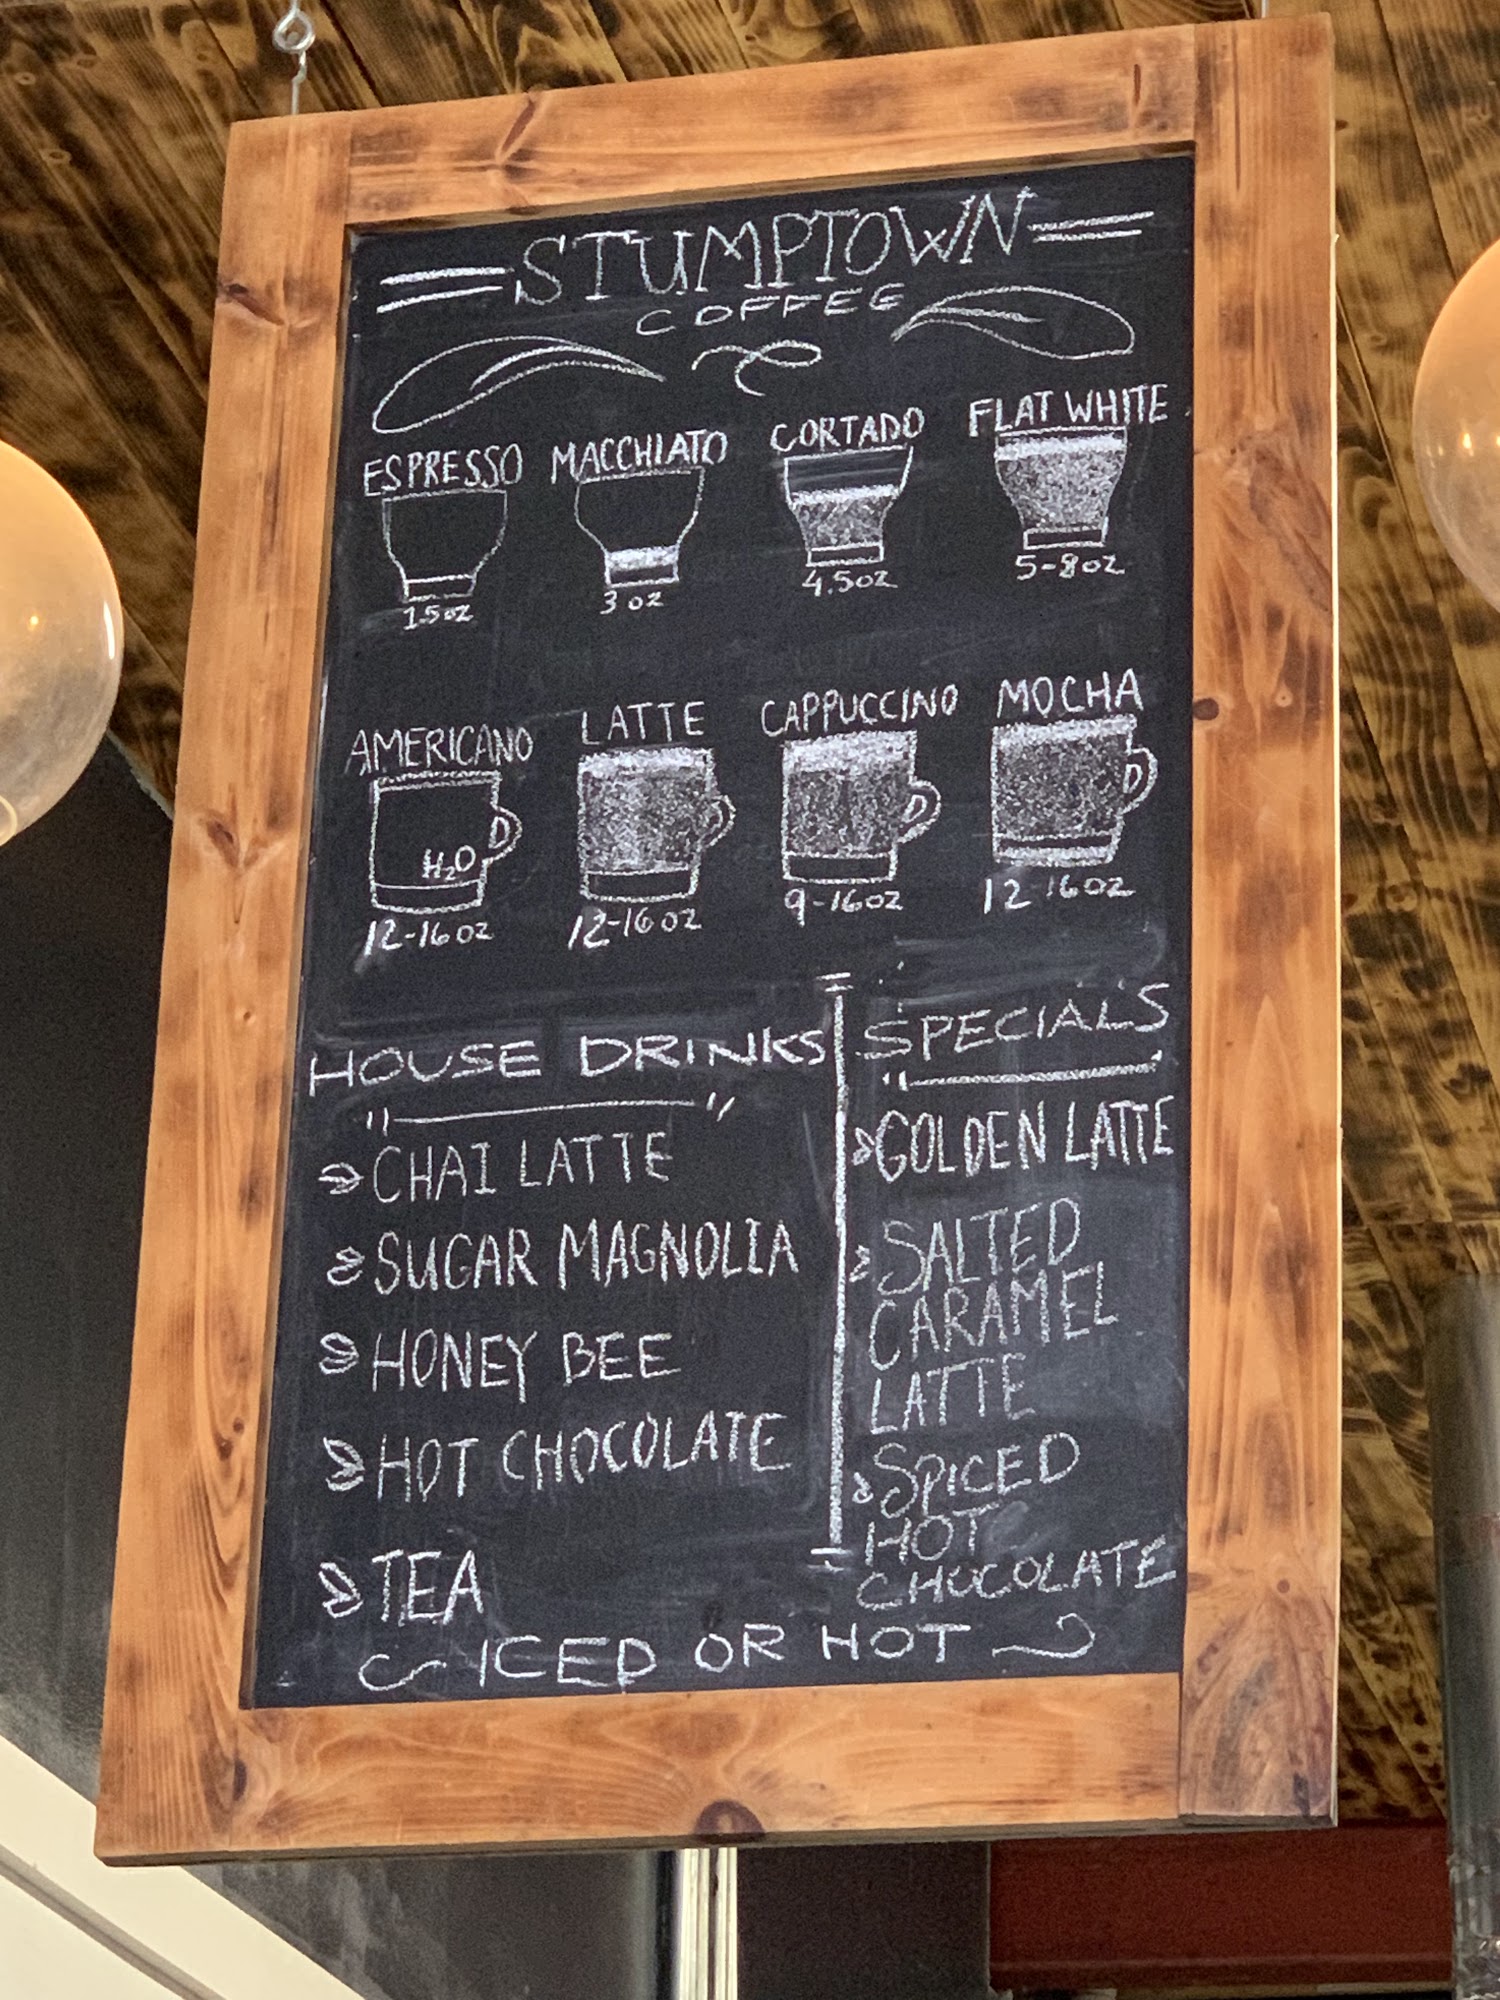 STUMPTOWN
COFFEE
ESPRESSO MACCHIATO CORTADO FLAT WHITE
1.5oz 3 oz 4.5oz 5-8oz
AMERICANO LATTE CAPPUCCINO MOCHA
H₂O
12-16oz 12-16oz 9-16oz 12-16oz
HOUSE DRINKS
CHAI LATTE
SUGAR MAGNOLIA
HONEY BEE
HOT CHOCOLATE
TEA
SPECIALS
GOLDEN LATTE
SALTED
CARAMEL
LATTE
SPICED
HOT
CHOCOLATE
ICED OR HOT